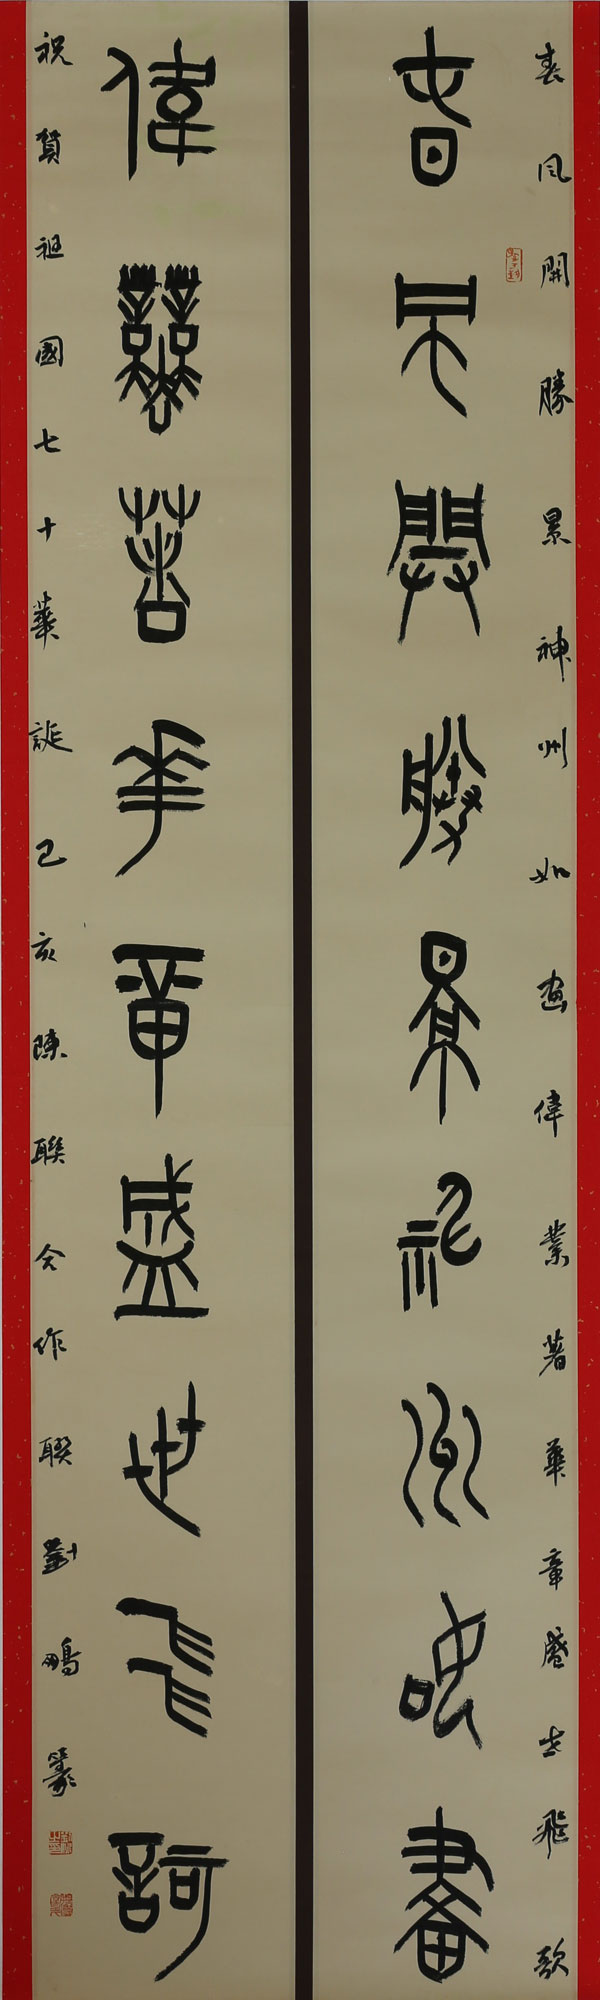 春風開勝景神州如畫偉業著華章盛世飛歌
春風開勝景神州如畫
偉業著華章盛世飛訶
祝賀祖國七十華誕己亥陳聯合作聯劉鵬篆